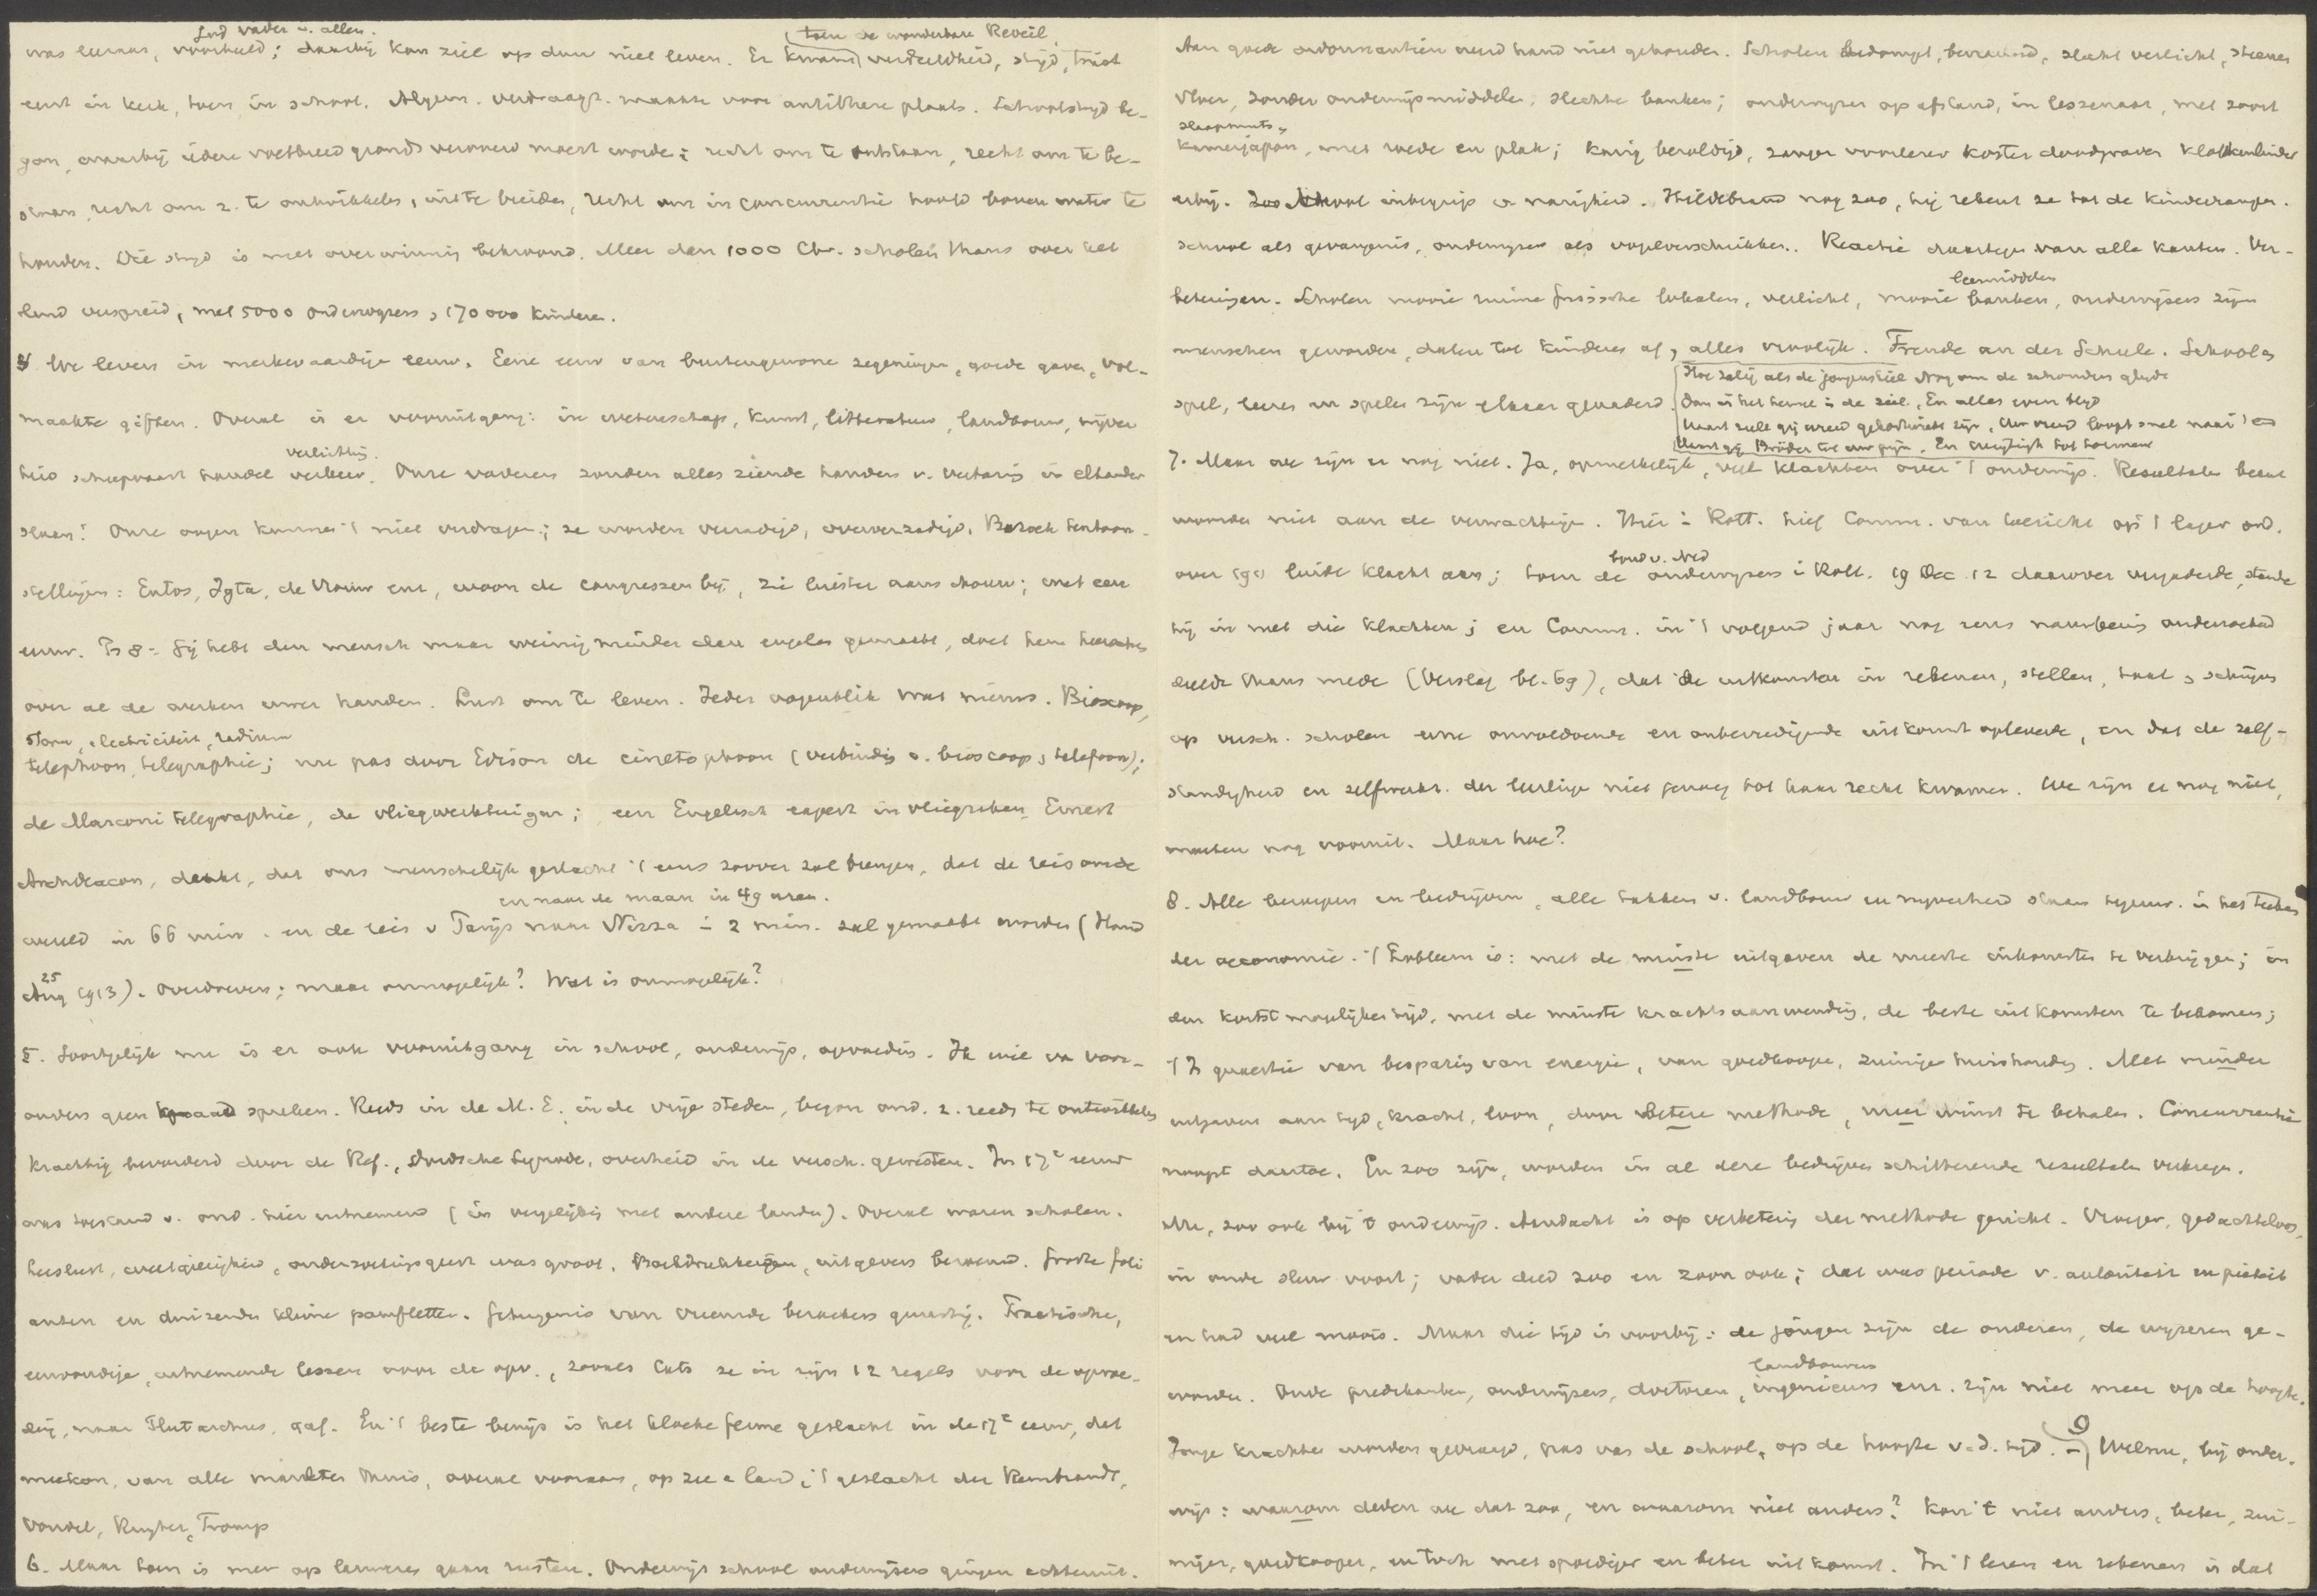 God vader v. allen. toen de wonderbare Reveil
was leeraar, voorbeeld; daarbij kon ziel op den niet leven. Er kwam verdeeldheid, strijd, twist
eerst in kerk, toen in school. Algem. verdraagz. maakte voor antithese plaats. Schoolstrijd be-
gon, waarbij iedere voetbreed gronds veroverd moest worden: recht om te ontstaan, recht om te be-
staan, recht om z. te ontwikkelen, uit te breiden, recht om in concurrentie hoofd boven water te
houden. Die strijd is met overwinning bekroond. Meer dan 1000 Chr. scholen thans over het
land verspreid, met 5000 onderwijzers, 170 000 kinderen.
4 We leven in merkwaardige eeuw. Eene eeuw van buitengewone zegeningen, goede gaven, vol-
maakte giften. Overal is er vooruitgang: in wetenschap, kunst, litteratuur, landbouw, nijver
verlichting.
heid scheepvaart handel verkeer. Onze vaderen zouden alles ziende handen v. verbazing in elkander
slaan! Onze oogen kunnen 't niet verdragen; ze worden verzadigd, oververzadigd. Bezoek tentoon-
stellingen: Entos, Igta, de Vrouw enz, woon de congressen bij, zie luister aanschouw; met een
eeuw. Ps 8: Gij hebt den mensch maar weinig minder dan engelen gemaakt, doet hem heerschen
over al de werken uwer handen. Lust om te leven. Ieder oogenblik wat nieuws. Bioscoop,
stoom, electriciteit, radium
telephoon, telegraphie; nu pas door Edison de cinetophoon (verbinding v. bioscoop, telefoon);
de Marconi telegraphie, de vliegwerktuigen; een Engelsch expert in vliegzaken Ernest
Archdeacon, denkt, dat ons menschelijk geslacht 't eens zoover zal brengen, dat de reis om de
en naar de maan in 49 uren.
wereld in 66 min. en de reis v Parijs naar Nizza in 2 min. zal gemaakt worden (Hand
25 Aug 1913). Overdreven; maar onmogelijk? Wat is onmogelijk?
5. Soortgelijk nu is er ook vooruitgang in school, onderwijs, opvoeding. Ik wil van voor-
ouders geen kwaad spreken. Reeds in de M. E. in de vrije steden, begon ond. z. reeds te ontwikkelen
krachtig bevorderd door de Ref., Dordsche Synode, overheid in de versch. gewesten. In 17e eeuw
was toestand v. ond. hier uitnemend (in vergelijking met andere landen). Overal waren scholen.
leeslust, weetgierigheid, onderzoekingsgeest was groot. Boekdrukkerijen, uitgevers beroemd. Groote foli
anten en duizenden kleine pamfletten. Getuigenis van vreemde bezoekers gunstig. Practische,
eenvoudige, uitnemende lessen voor de opv., zooals Cats ze in zijn 12 regels voor de opvoe-
ding, naar Plutarchus, gaf. En 't beste bewijs is het kloeke ferme geslacht in de 17e eeuw, dat
meekon, van alle markten thuis, overal vooraan, op zee en land; 't geslacht der Rembrandt,
Vondel, Ruyter, Tromp
6. Maar toen is men op lauweren gaan rusten. Onderwijs school onderwijzers gingen achteruit.
Aan goede ordonnantiën werd hand niet gehouden. Scholen bedompt, berookt, slecht verlicht, steenen
vloer, zonder onderwijsmiddelen, slechte banken; onderwijzer op afstand, in lessenaar, met soort
slaapmuts,
kamerjapon, met roede en plak; karig bezoldigd, zanger voorlezer koster doodgraver klokkenluider
erbij. Zoo school inbegrip v. narigheid. Hildebrand nog zoo, hij rekent ze tot de kinderrampen.
School als gevangenis, onderwijzer als vogelverschrikker. Reactie daartegen van alle kanten. Ver-
leermiddelen
beteringen. Scholen mooie ruime frissche lokalen, verlicht, mooie banken, onderwijzers zijn
menschen geworden, dalen tot kinderen af, alles vroolijk. Freude an der Schule. School en
spel, leeren en spelen zijn elkaar genaderd.
Hoe zalig als de jongenskiel Nog om de schouders glijdt
Dan is het hemel in de ziel, En alles even blij
Want gij Broeder tot uw pijn. En
7. Maar we zijn er nog niet. Ja, opmerkelijk, veel klachten over 't onderwijs. Resultaten beant
woorden niet aan de verwachtingen. Hier in Rott. hief Comm. van toezicht op 't lager ond.
bond v. Ned
over 1911 luide klacht aan; toen de onderwijzers in Rott. 19 Dec. 12 daarover vergaderde, stemde
hij in met die klachten; en Comm. in 't volgend jaar nog eens nauwkeurig onderzoekend
deelde thans mede (Verslag bl. 69), dat de uitkomsten in rekenen, stellen, taal, schrijven
op versch. scholen eene onvoldoende en onbevredigende uitkomst opleverde, en dat de zelf-
standigheid en zelfwerkz. der leerlingen niet genoeg tot haar recht kwamen. We zijn er nog niet,
moeten nog vooruit. Maar hoe?
8. Alle beroepen en bedrijven, alle takken v. landbouw en nijverheid staan tegenw. in het teeken
der oeconomie. 't Probleem is: met de minste uitgaven de meeste inkomsten te verkrijgen; in
den kortst mogelijken tijd, met de minste krachtsaanwending, de beste uitkomsten te bekomen;
't Is quaestie van besparing van energie, van goedkoope, zuinige huishouding. Met minder
uitgaven aan tijd, kracht, loon, door betere methode, meer winst te behalen. Concurrentie
noopt daartoe. En zoo zijn, worden in al deze bedrijven schitterende resultaten verkregen.
Nu, zoo ook bij 't onderwijs. Aandacht is op verbetering der methode gericht. Vroeger, gedachteloos,
in oude sleur voort; vader deed zoo en zoon ook; dat was periode v. autoriteit en pieteit
en had veel moois. Maar die tijd is voorbij: de jongen zijn de ouderen, de wijzeren ge-
landbouwers
worden. Oude predikanten, onderwijzers, doctoren, ingenieurs enz. zijn niet meer op de hoogte.
Jonge krachten worden gevraagd, pas van de school, op de hoogte v. d. tijd. 9 Welnu, bij onder-
wijs: waarom deden we dat zoo, en waarom niet anders? Kon 't niet anders, beter, zui-
niger, goedkooper, en toch met spoediger en beter uitkomst. In 't lezen en rekenen is dat